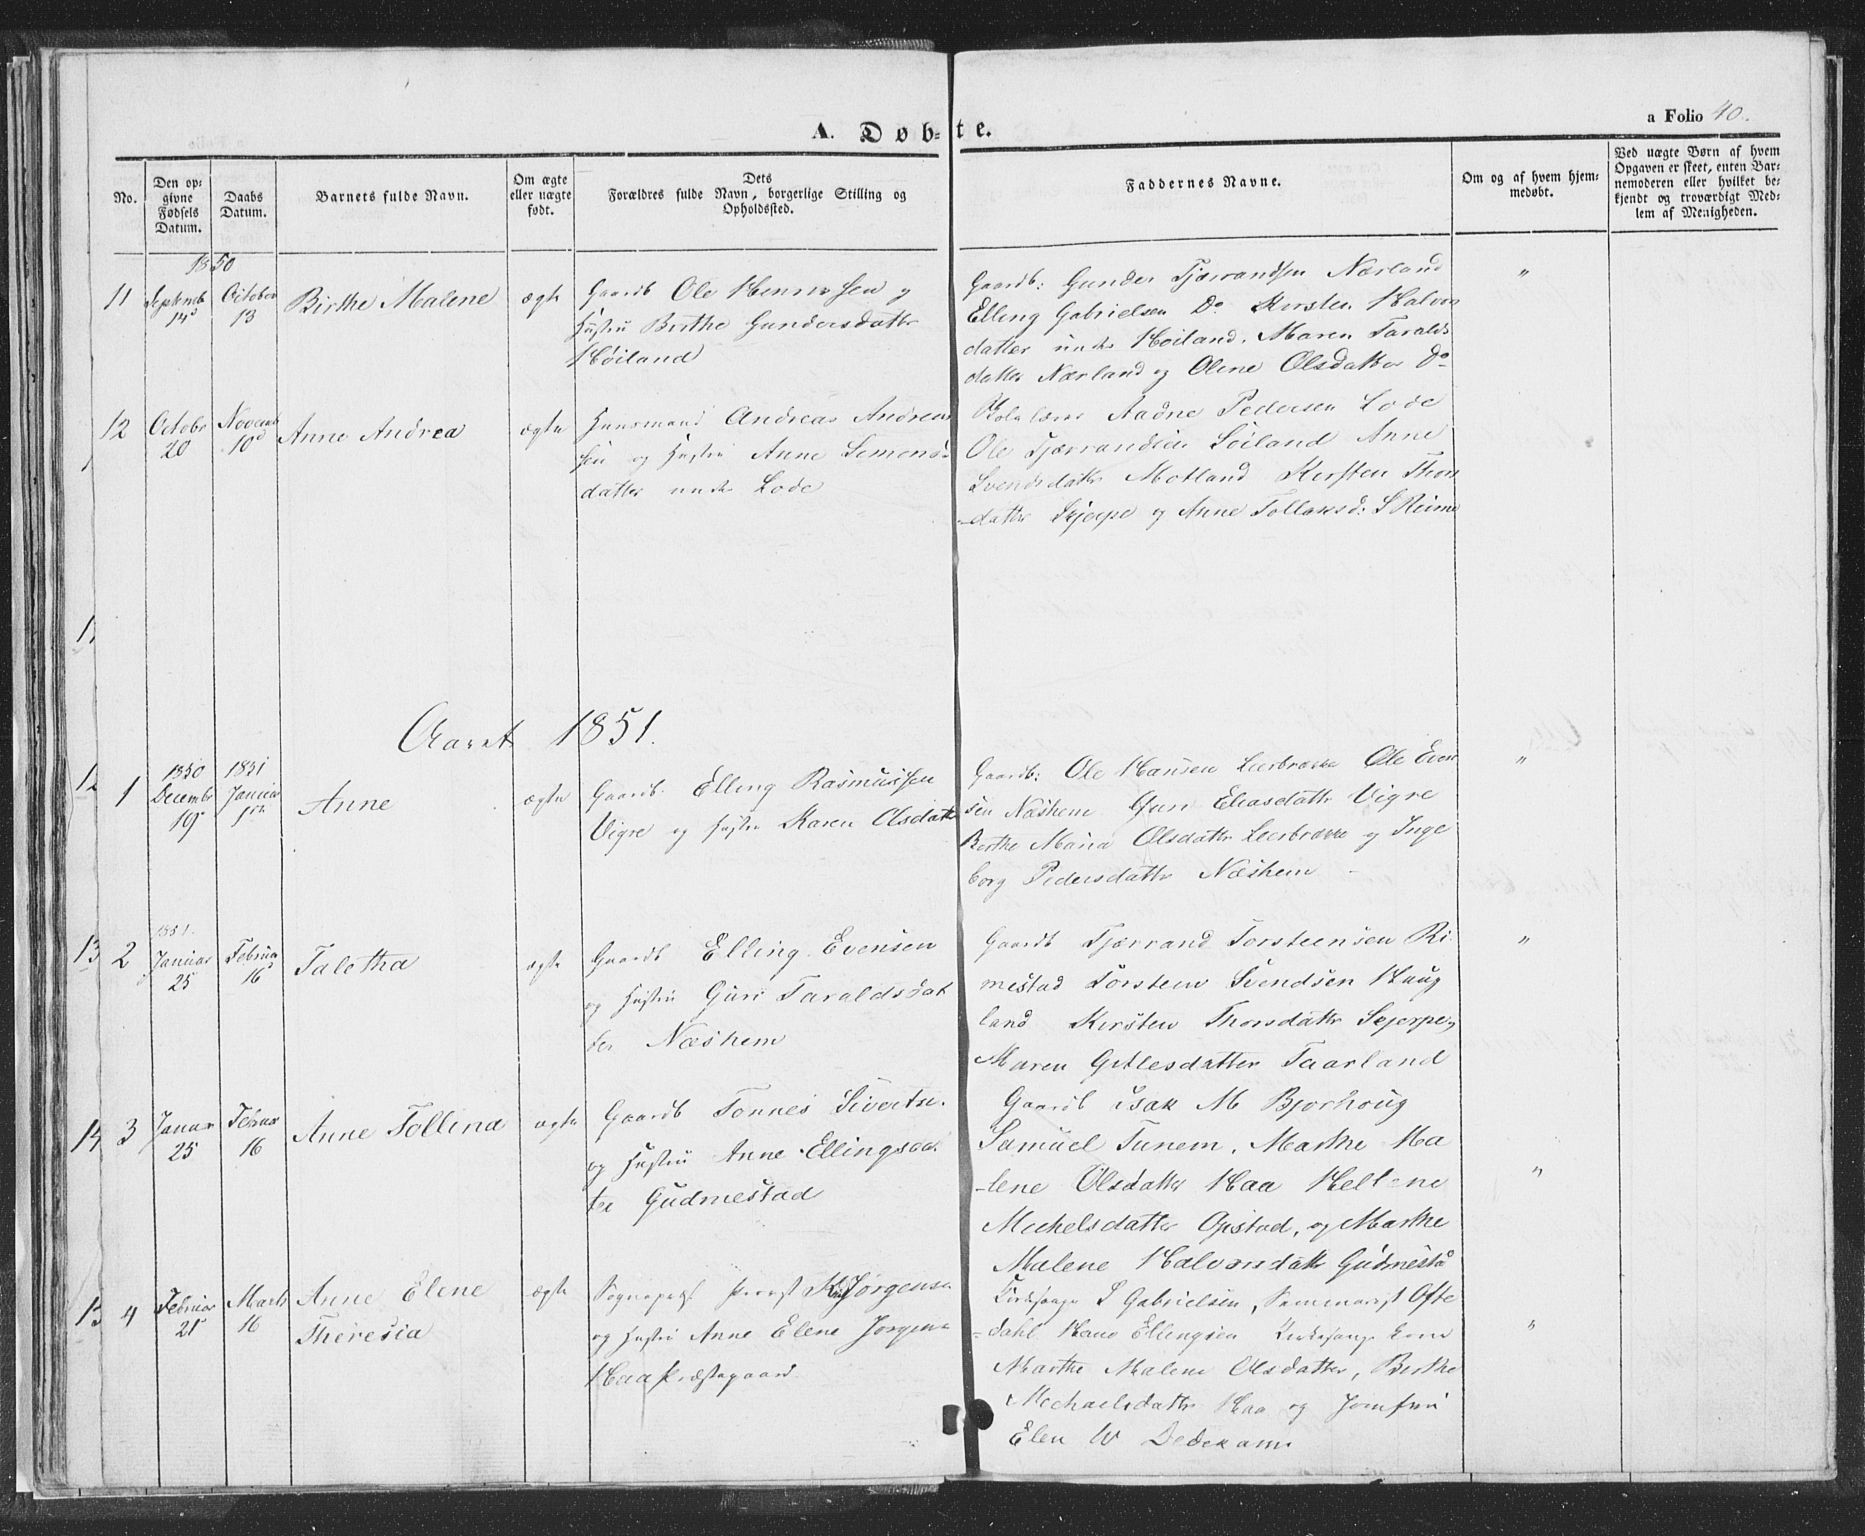 a Folio 40.
A. Døb-te.
No.
Den op-
givne
Fødsels
Datum.
Daabs
Datum.
Barnets fulde Navn.
Om ægte
eller uægte
født.
Dets
Forældres fulde Navn, borgerlige Stilling og
Opholdssted.
Faddernes Navne.
Om og af hvem hjem-
medøbt.
Ved uægte Børn af hvem
Opgaven er skeet, enten Bar-
nemoderen eller hvilket be-
kjendt og troværdigt Med-
lem af Menigheden.
1850
11 Septemb 14d October 13 Birthe Malene ægte
Gaardb Ole og
Hustru Birthe Gundersdatter
Høiland
Gaardb: Gunder Tjærrandsen Nærland
Elling Gabrielsen Do Kirsten Halvors
datter under Høiland. Maren Taralds
datter Nærland og Olene Olsdatter Do
"
12 Octobr 20 Novemb 10d Anne Andrea ægte
Huusmand Andreas Andrea
sen og Hustru Anne Simons-
datter under Lode
Aadne Pedersen Lode
Ole Tjærrandsen Søiland Anne
Svendsdatter Motland Kirsten Thors
-datter Skjerpe og Anne Tollaksd: S Reime
Aaret 1851.
1 1850 Decembr 19 1851 Januar 1ste Anne ægte
Gaardb. Elling Rasmussen
Vigre og Hustru Karen Olsdatter
Gaardb: Ole Hansen Leerbrække Ole Even
sen Næshem Guri Eliasdattr Vigre
Berthe Maria Olsdattr Leerbrække og Inge
borg Pedersdattr Næshem
"
2 1851. Januar 25 Februar 16d Taletha ægte
Gaardb Elling Evensen
og Hustru Guri Taraldsdat
ter Næshem
Gaardb Tjærrand Torsteensen Ri-
mestad Torsteen Svendsen Haug
land Kirsten Thorsdattr Skjerpe og
Maren Gitlesdatter Taarland
"
3 Januar 25 Februar 16 Anne Tollina ægte
Gaardb Tønnes Sivertse.
og Hustru Anne Ellingsdat
ter Gudmestad
Gaardb Isak M Bjorhoug
Samuel Tunem. Marthe Ma
-lene Olsdatter Haa Hellene
Michelsdatter Opstad, og Marthe
Malene Halvorsdatter Gudmestad
"
4 Februar 21 Marts 16 Anne Elene
Theresia ægte
Sognepræst Provst Jørgensen
og Hustru Anne Elene Jørgens
Haa Præstegaard.
Kirkesanger S Gabrielsen, Seminarist Ofte
-dahl Hans Ellingsen Kirkesanger kone
Marthe Malene Olsdatter, Birthe
Mechaelsdatter Haa og Jomfru
Elen W Dedekam
"